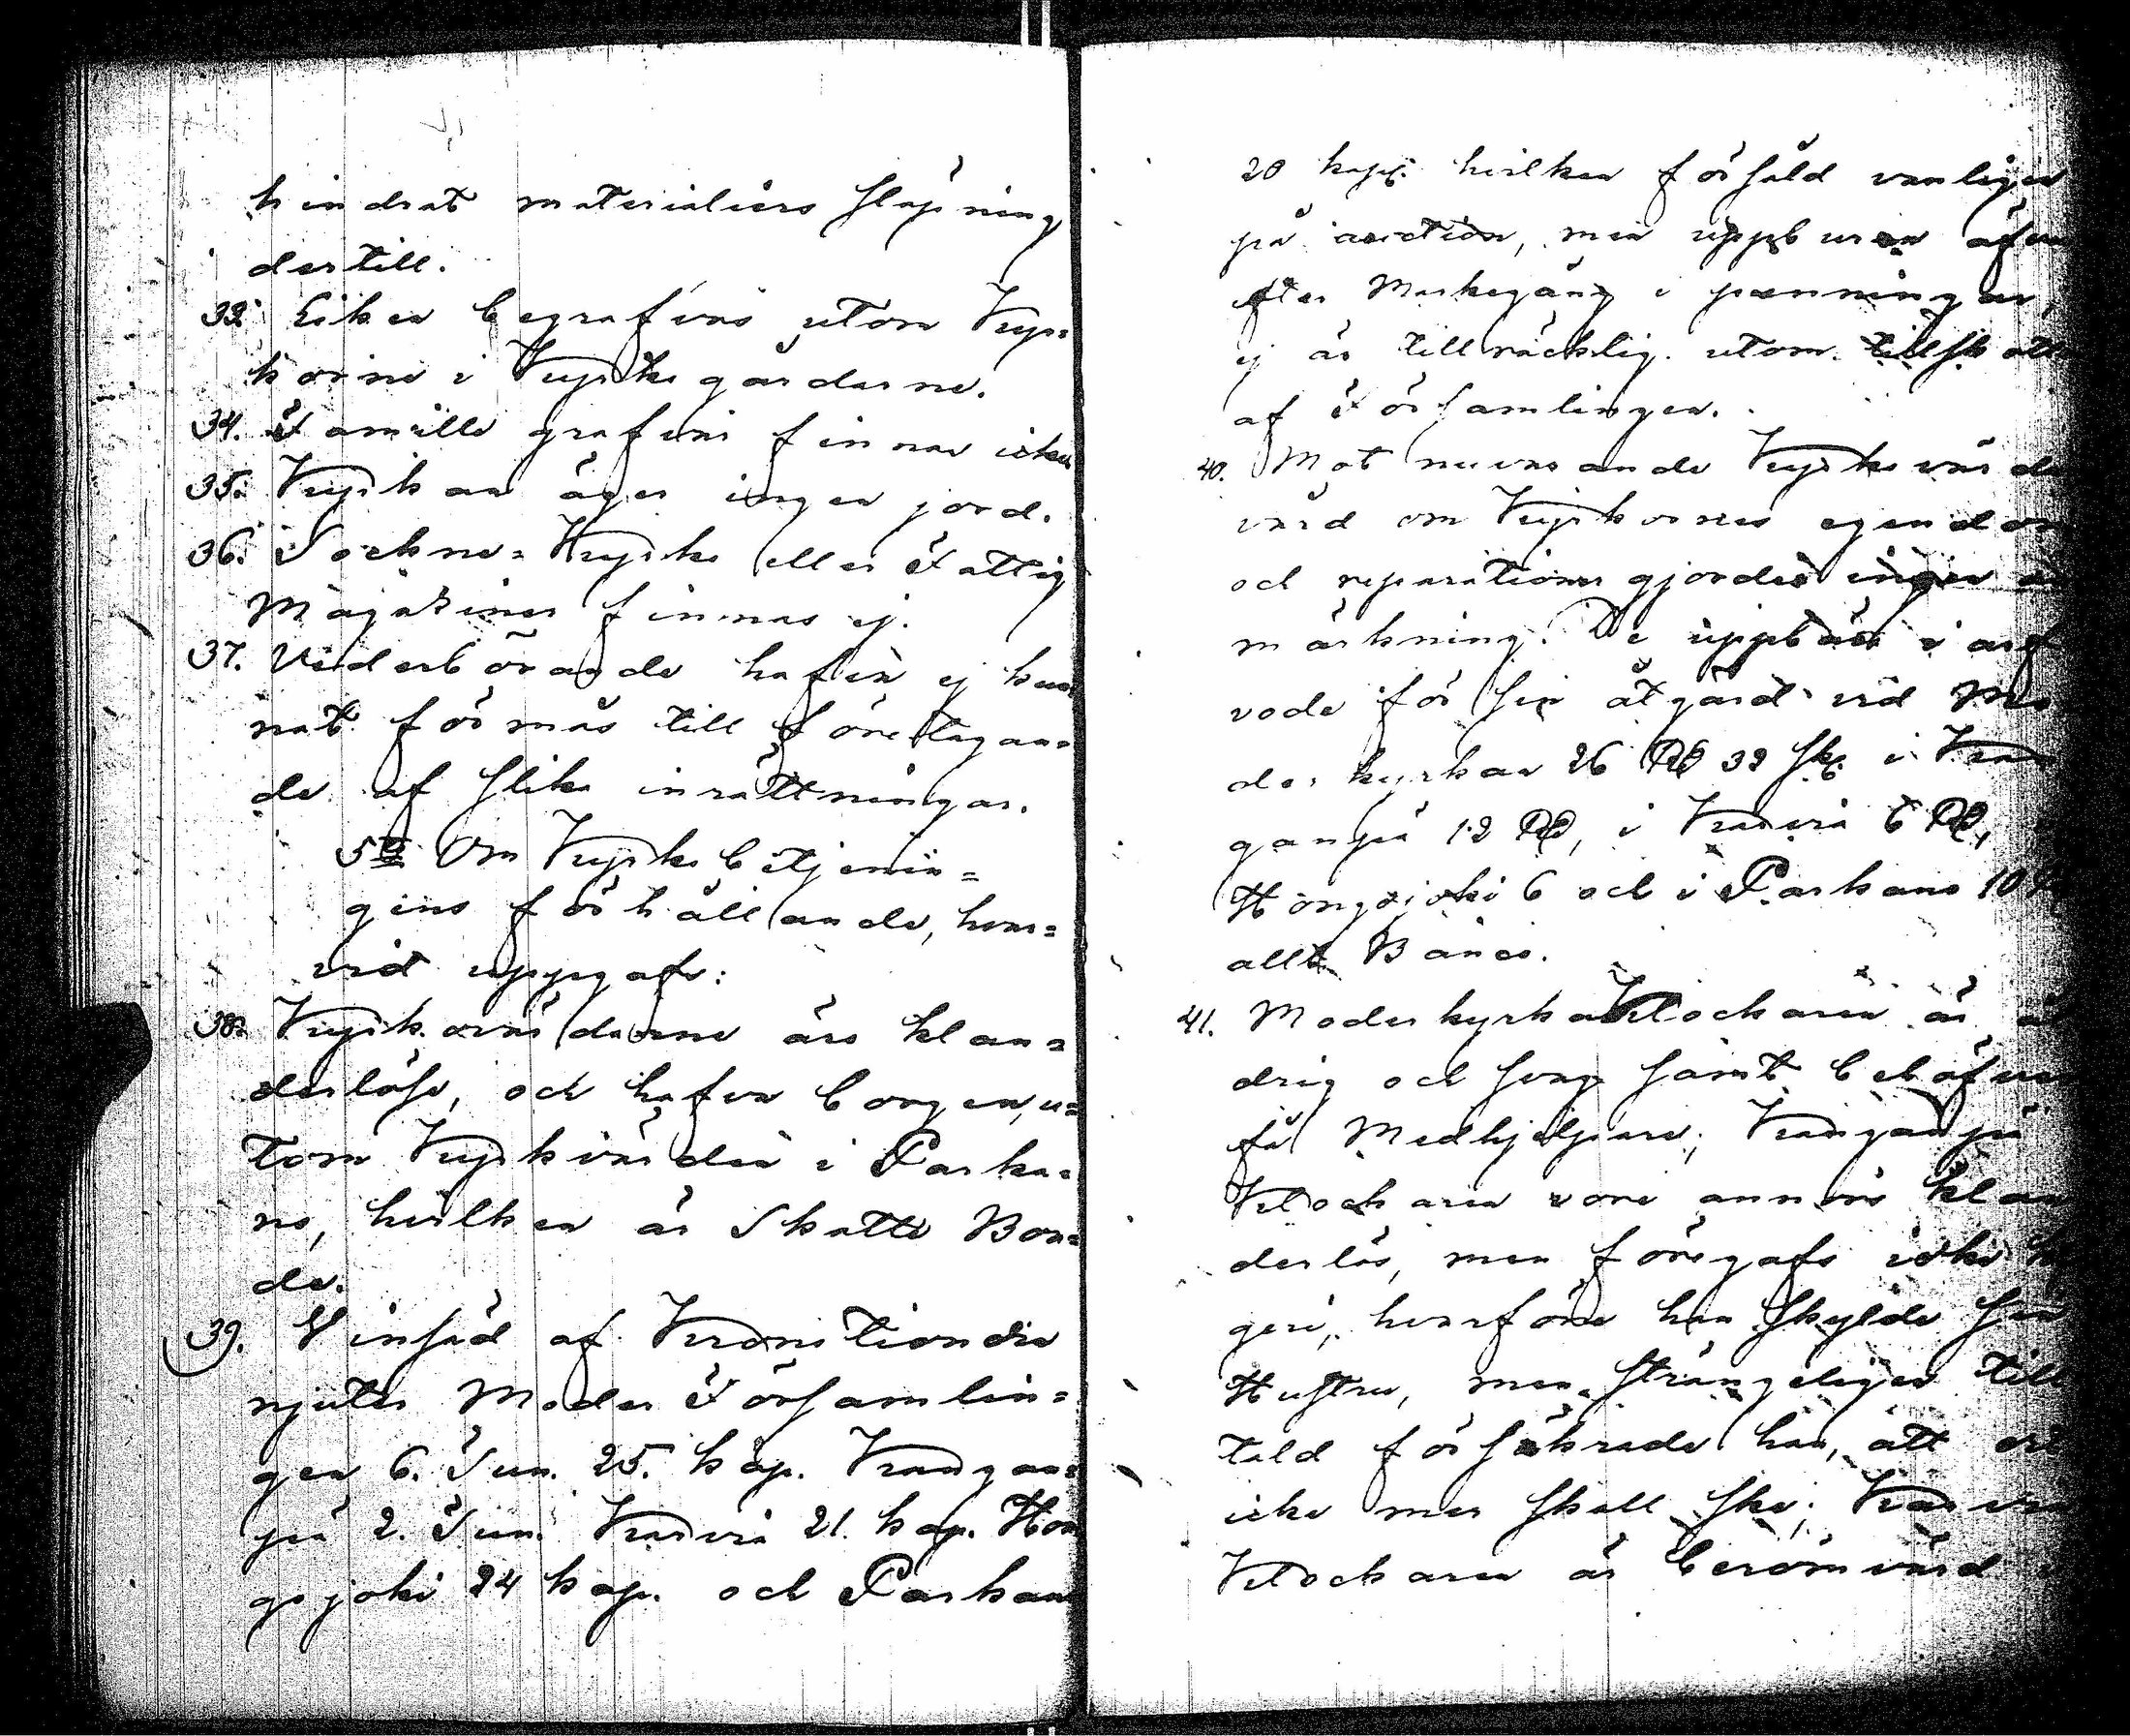 hindrat materialiers släpning
dertill.
33. Liken begrafvas utom Kyr=
korne i Kyrkogårdarne.
34. Famille grafvar finnas icke
35. Kyrkan äger ingen jord.
36. Sockne= Kyrko eller Fattig
Magaziner finnas ej.
37. Vederbörande hafva ej kun
nat förmås till företagan=
de af slika inrättningar.
5to Om Kyrko betjenin=
gens förhållande, hvar=
vid uppgafs:
38. Kyrkovärdarne äro klan=
derlöse, och hafva borgen, u=
tom Kyrkvärden i Parka=
no, hvilken är Skatte Bon=
de.
39. Vinsäd af Krono Tionden
njuter Moder Församlin=
gen 6. Tun. 25. kap. Kangan=
pä 2. Tun. Karvia 21. kap. Hon
gojoki 24 kap. och Parkano
20 kapp. hvilken försåld vanligen
på auction, men uppburen äfven
efter Markegång i penningar,
ej är tillräcklig utom tillskott
af Församlingen.
40. Mot nuvarande Kyrkovärdar
vård om Kyrkornes egendom
och reparationer gjordes ingen an
märkning. De uppbära i arf
vode för sin åtgärd vid Mo
derkyrkan 26 Rd 32 sk. i Kan
ganpä 12 Rd, i Karvia 6 Rd,
Hongojoki 6 och i Parkano 10
allt Banco.
41. Moderkyrko Klockaren är ål
drig och svag samt behöfver
få Medhjelpare; Kanganpä
Klockaren vore annars klan
derlös, men föregafs icke
geri, hvarföre han skylde sin
Hustru, men strängeligen till
tald försäkrade han, att det
icke mer skall ske; Karvia
Klockaren är berömvärd